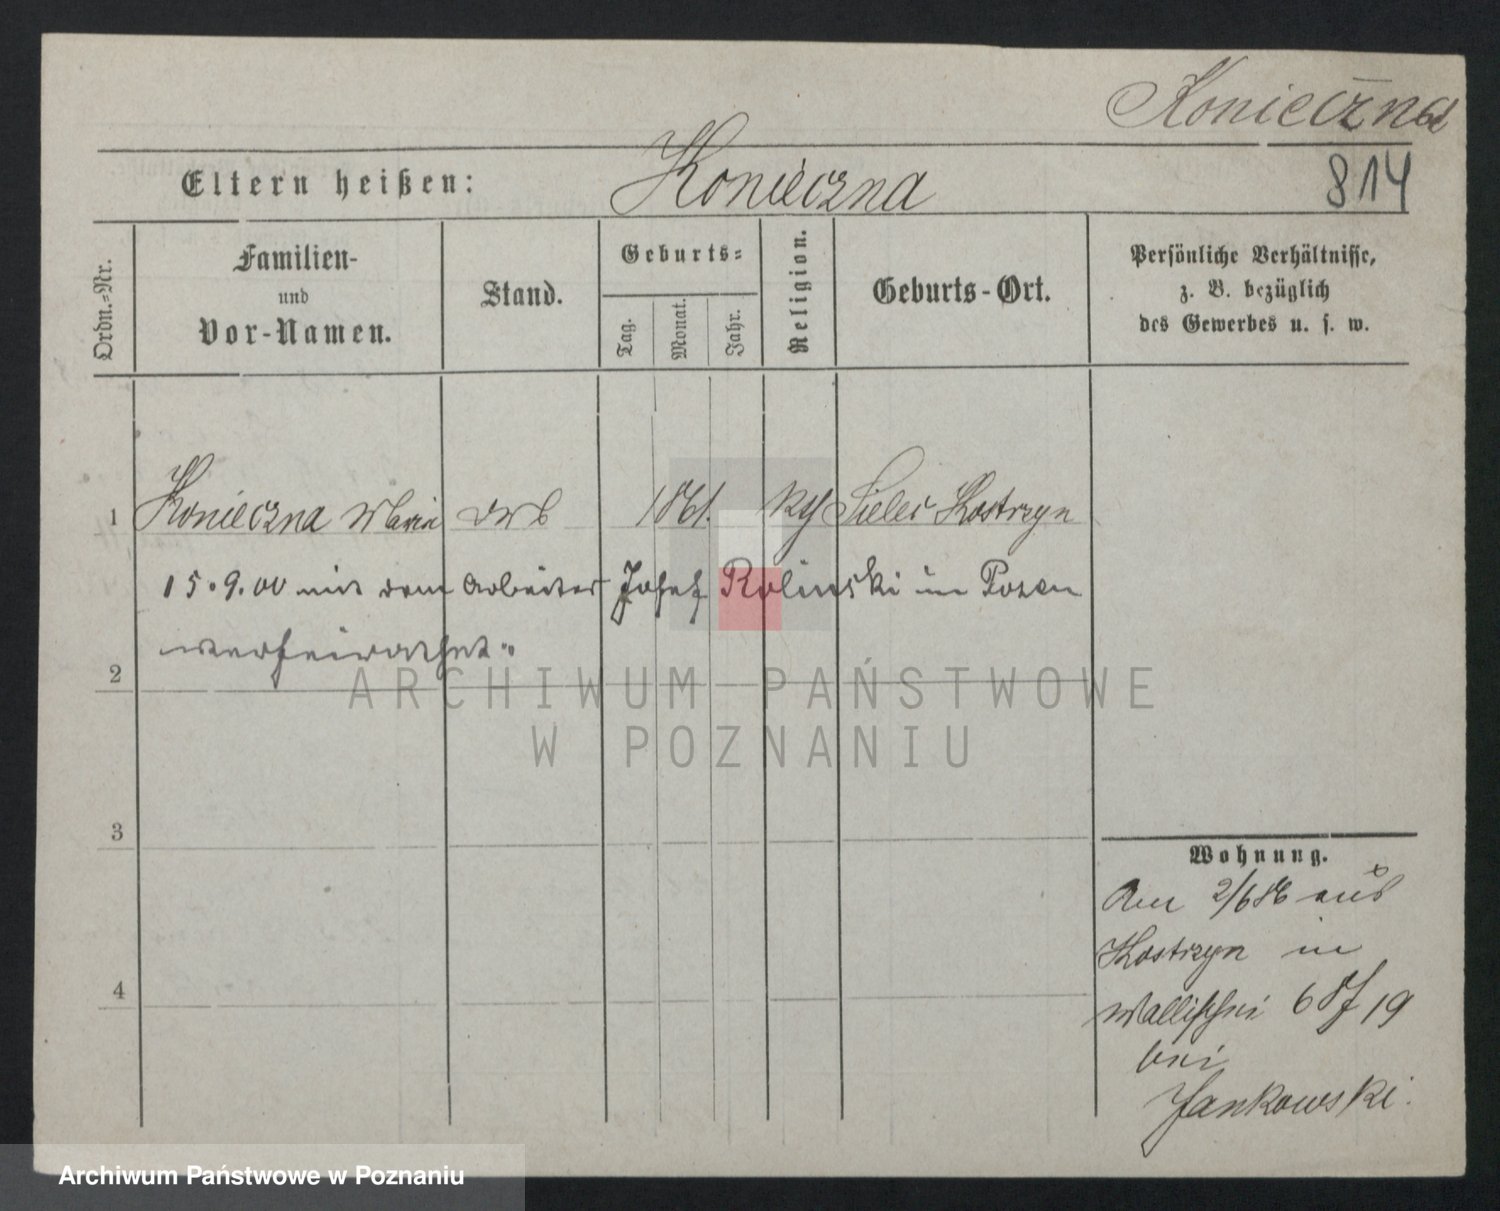 Konieczna
814
Eltern heißen: Konieczna
Ordn.-Nr.
Familien-
und
Vor-Namen.
Stand.
Geburts-
Tag.
Monat.
Jahr.
Religion.
Geburts-Ort.
Persönliche Verhältnisse,
z. B. bezüglich
des Gewerbes u. s. w.
1 Konieczna Maria 1861. Kth Kostrzyn
15.9.00 mit dem Arbeiter Josef Rolinski in Posen
verheirathet.
2
3
4
Wohnung.
Am 2/6 86 aus
Kostrzyn in
Wallischei 6 19
bei
Jankowski.
ARCHIWUM PAŃSTWOWE
W POZNANIU
Archiwum Państwowe w Poznaniu